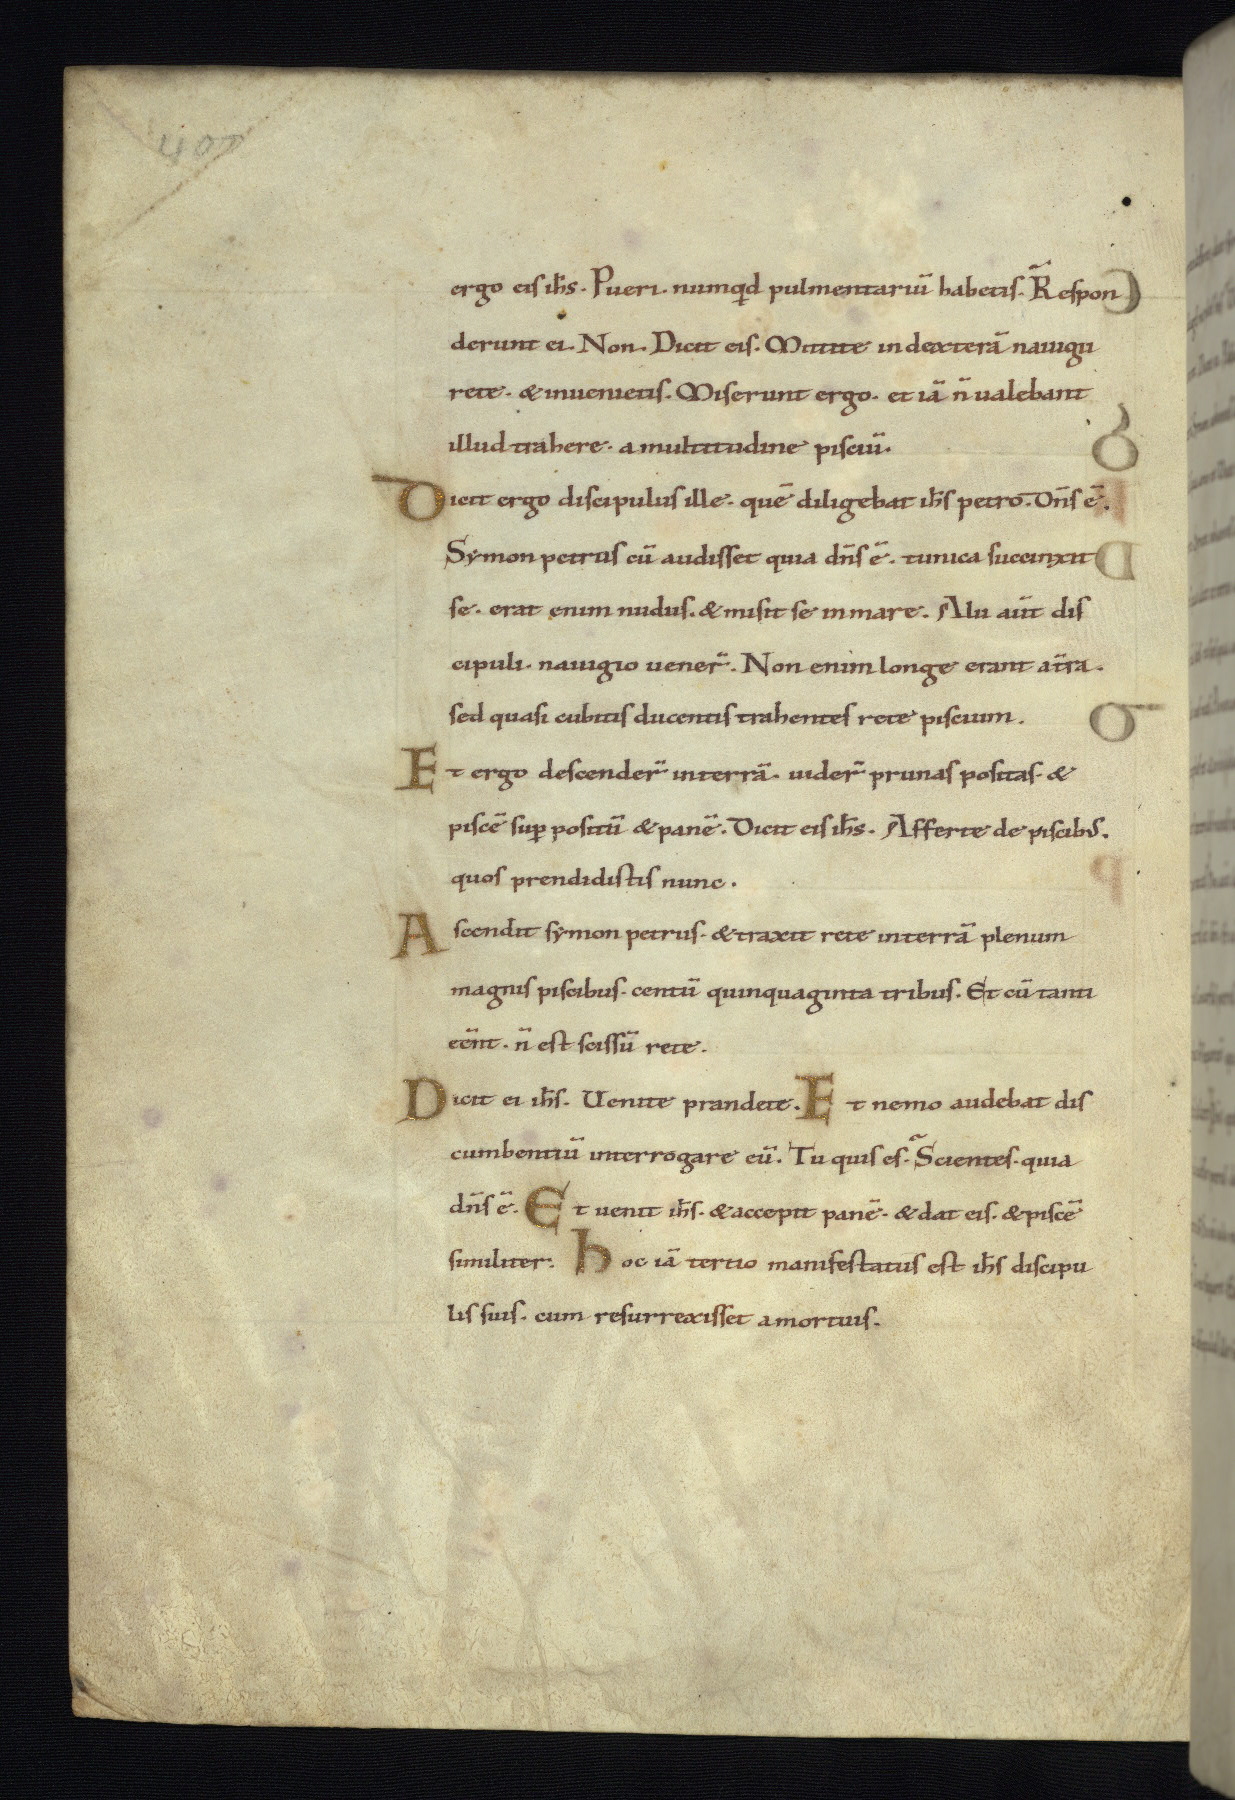 40v
ergo eis ih̄s. Pueri. numqd pulmentariū habetis. Respon
derunt ei. Non. Dicit eis. Mittite in dexterā nauigii
rete. & inuenietis. Miserunt ergo. et iā n̄ ualebant
illud trahere. a multitudine pisciū.
Dicit ergo discipulus ille. quē diligebat ih̄s petro. Dn̄s ē.
Symon petrus cū audisset quia dn̄s ē. tunica succinxit
se. erat enim nudus. & misit se in mare. Alii aūt dis
cipuli. nauigio uener̄. Non enim longe erant at̄ra.
sed quasi cubitis ducentis trahentes rete piscium.
Et ergo descender̄ in terrā. uider̄ prunas positas. &
piscē suꝑ positū & panē. Dicit eis ih̄s. Afferte de piscib;.
quos prendidistis nunc.
Ascendit symon petrus. & traxit rete in terrā plenum
magnis piscibus. centū quinquaginta tribus. Et cū tanti
eēnt. n̄ est scissū rete.
Dicit ei ih̄s. Uenite prandete. Et nemo audebat dis
cumbentiū interrogare eū. Tu quis es. Scientes. quia
dn̄s ē. Et uenit ih̄s. & accepit panē. & dat eis. & piscē
similiter. hoc iā tertio manifestatus est ih̄s discipu
lis suis. cum resurrexisset a mortuis.